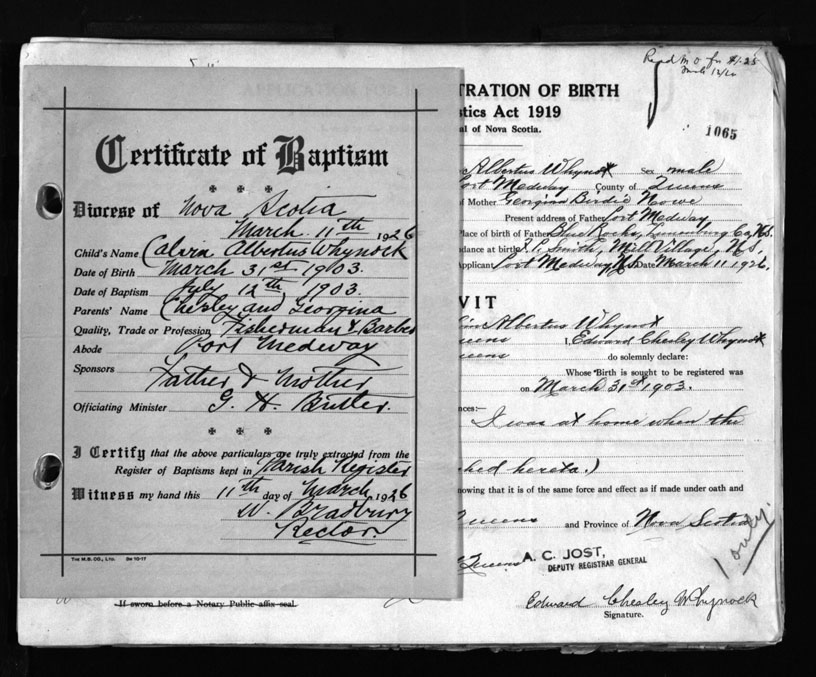 Certificate of Baptism
Diocese of Nova Scotia
March 11th 1926
Child's Name Calvin Albertus Whynock
Date of Birth March 31st 1903.
Date of Baptism July 12th 1903.
Parents' Name Chesley and Georgina
Quality, Trade or Profession Fisherman & Barber
Abode Port Medway
Sponsors Father & Mother
Officiating Minister G. H. Butler.
I Certify that the above particulars are truly extracted from the
Register of Baptisms kept in Parish Register
Witness my hand this 11th day of March, 1926
W. Bradbury
Rector.
The M.B. Co., Ltd.
If sworn before a Notary Public affix seal.
TRATION OF BIRTH
stics Act 1919
al of Nova Scotia.
1065
Albertus Whynot Sex male
Port Medway County of Queens
of Mother Georgina Birdie Nowe
Present address of Father Port Medway
Place of birth of Father Blue Rocks, Lunenburg Co, N.S.
dance at birth Smith, Mill Village, N.S.
Applicant Port Medway N.S. Date March 11 1926.
VIT
Albertus Whynot
Queens I, Edward Chesley Whynot
Queens do solemnly declare:
Whose Birth is sought to be registered was
on March 31st 1903.
nces:—
I was at home when the
ched hereto.)
nowing that it is of the same force and effect as if made under oath and
Queens and Province of Nova Scotia
Queens
A. C. JOST,
DEPUTY REGISTRAR GENERAL
1 only.
Edward Chesley Whynock
Signature.